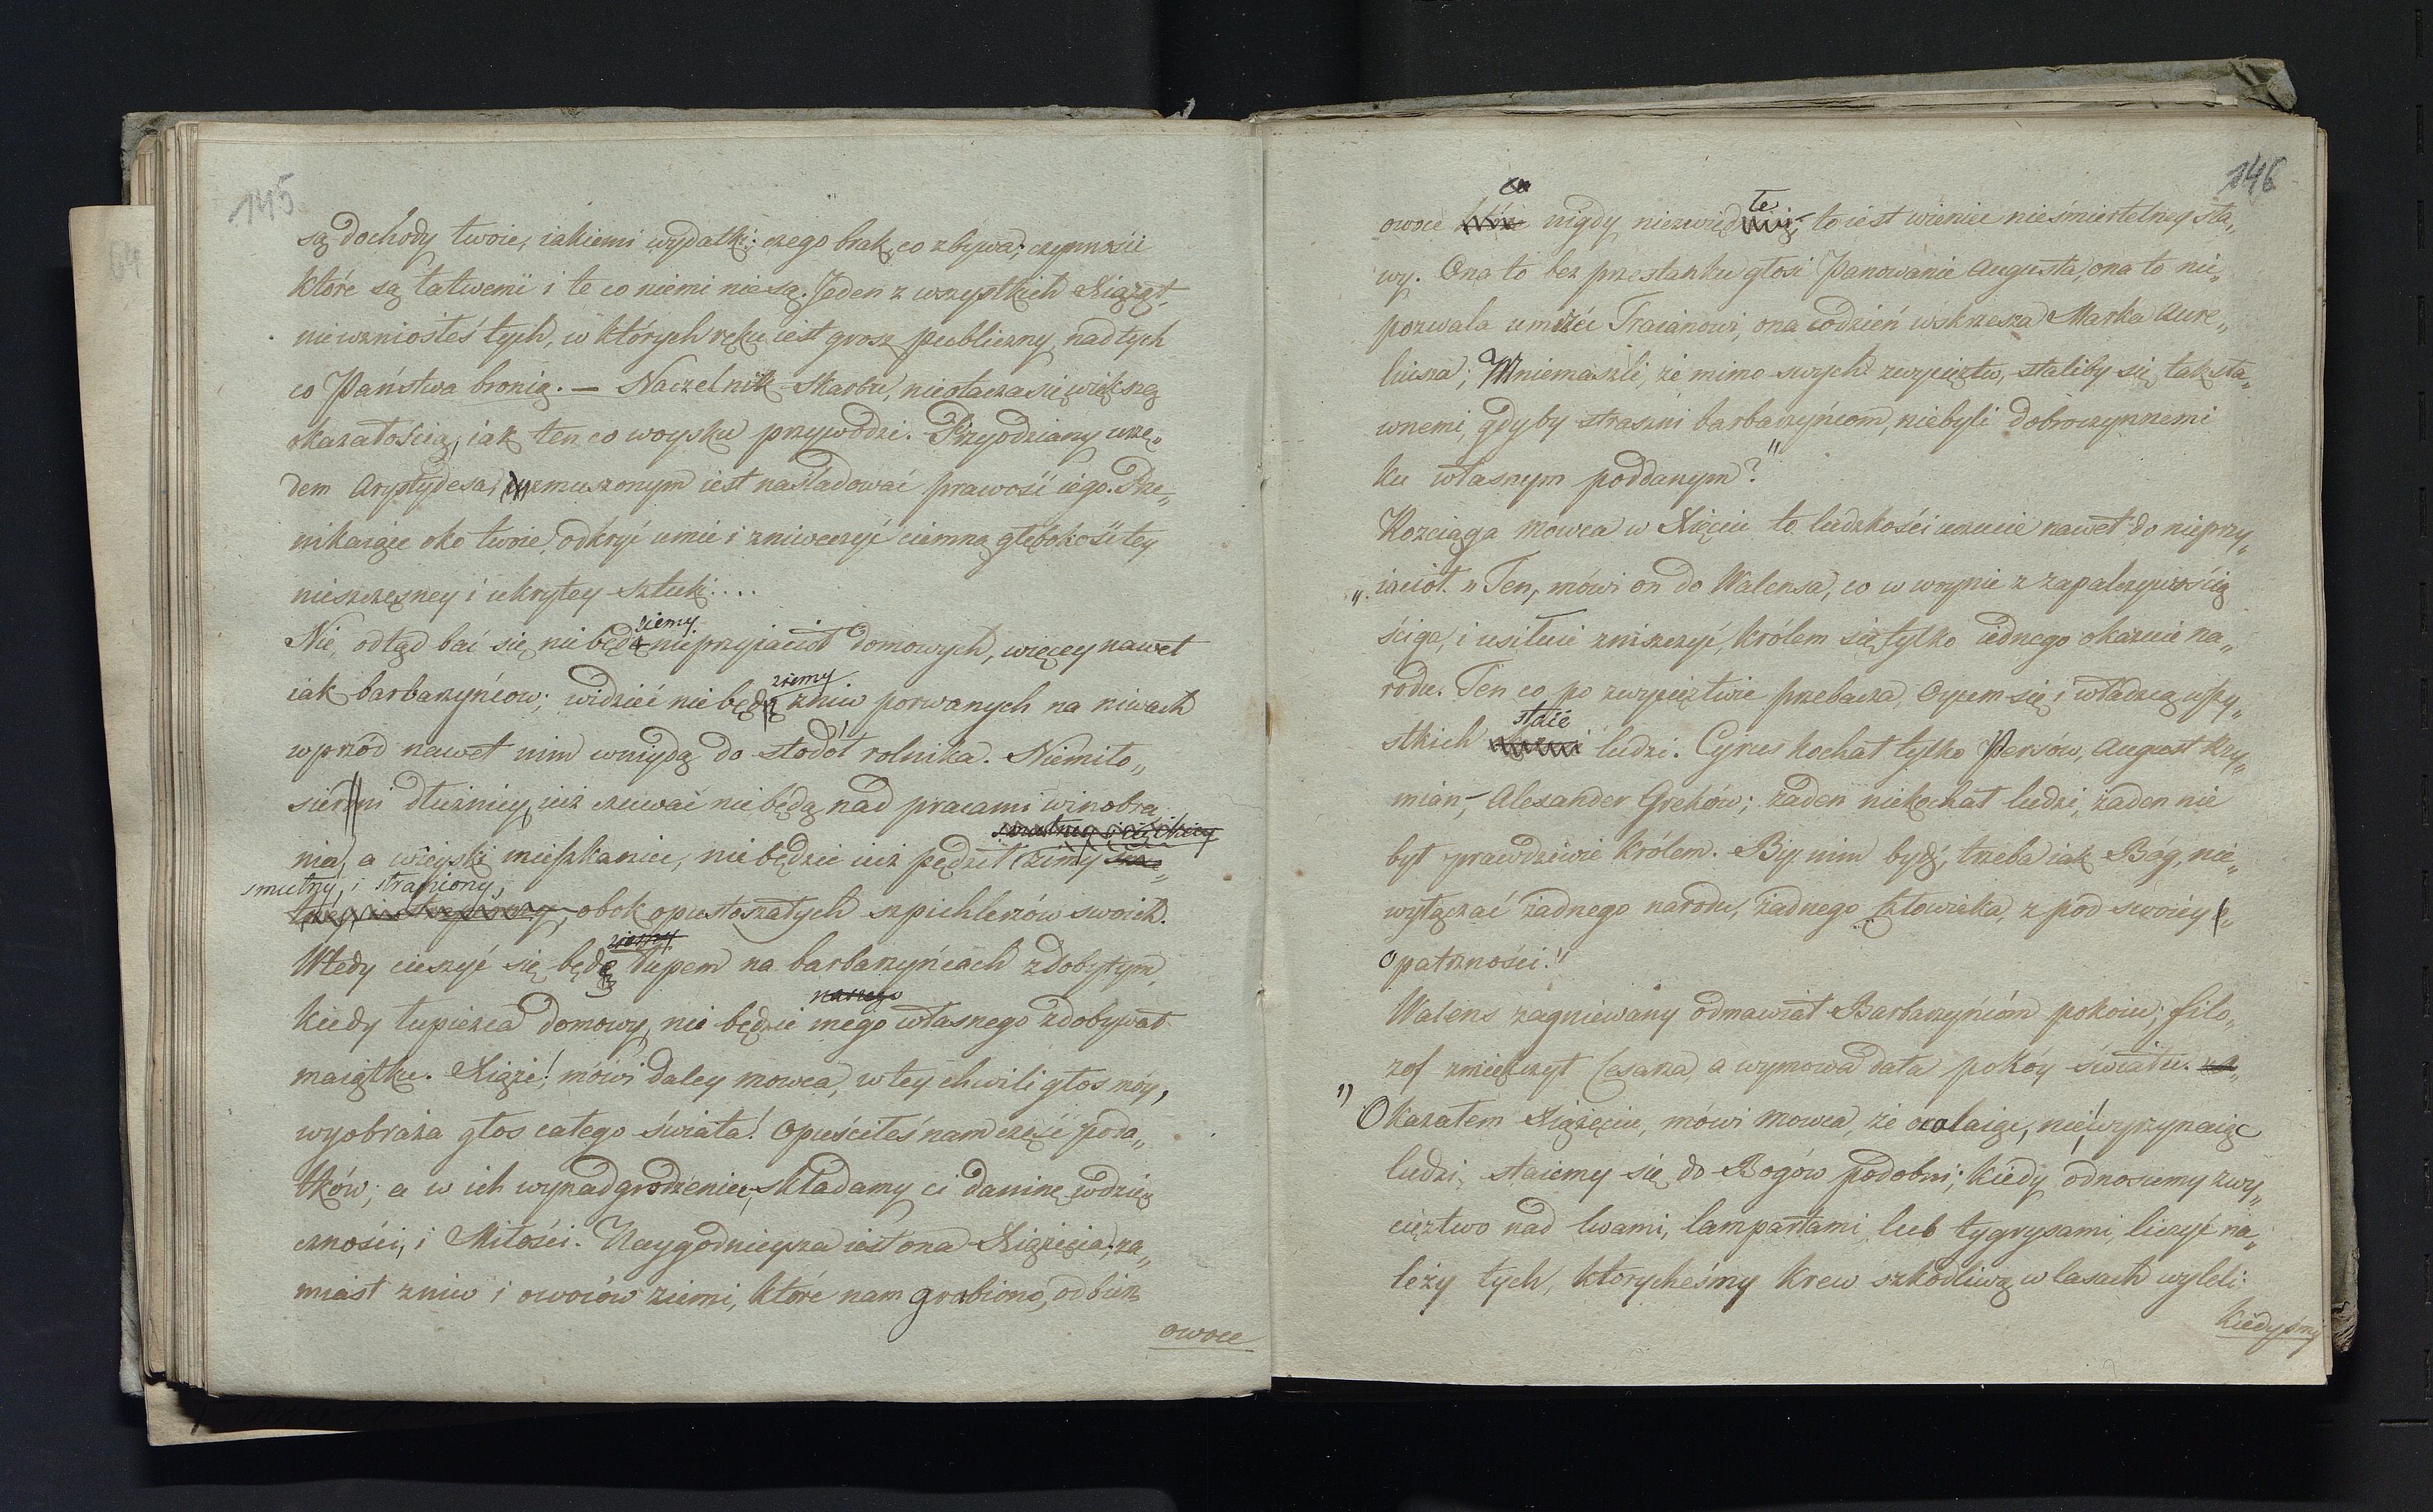 145
są dochody twoie, iakiemi wydatki; czego brak, co zbywa; czynności
które są łatwemi i te co niemi nie są. Jeden z wszystkich Xiążąt,
niewzniosłeś tych, w których ręku iest grosz publiczny, nad tych
co Państwa bronią. — Naczelnik Skarbu, nieotacza się większą
okazałością, iak ten co woysku przywodzi. Przyodziany urzę„
dem Arystydesa, zmuszonym iest naśladować prawość iego. Prze„
nikaiące oko twoie, odkryć umie i zniweczyć ciemną głębokość tey
nieszczęsney i ukrytey sztuki....
ziemy
Nie, odtąd bać się nie będę nieprzyiaciół domowych, więcey nawet
ziemy
iak barbarzyńcow; widzieć nie będę żniw porwanych na niwach
wprzód nawet nim wniydą do stodół rolnika. Niemiło„
sierni dłużnicy, iuż czuwać nie będą nad pracami winobra„
smutney i ciężkiey
nia, a wieyski mieszkaniec, nie będzie iuż pędził zimy smu„
smutny, i strapiony,
tney, i strapiony, obok opustoszałych szpichlerzów swoich.
ziemy
Wtedy cieszyć się będę łupem na barbarzyńcach zdobytym,
naszego
kiedy łupieżca domowy, nie będzie mego własnego zdobywał
maiątku. Xiąże! mówi daley mowca, w tey chwili głos móy,
wyobraża głos całego świata! Opuściłeś nam część poda„
tków; a w ich wynadgrodzeniu, składamy ci daninę wdzię„
czności, i Miłości. Naygodnieysza iest ona Xiążęcia; za„
miast żniw i owoców ziemi, które nam grabiono, odbierz
owoce
146
co te
owoce które nigdy niezwiędnią; to iest wieniec nieśmiertelney sła„
wy. Ona to bez przestanku głosi Panowanie Augusta, ona to nie„
pozwala umrzéć Traianowi, ona codzień wskrzesza Marka Aure„
liusza; Mniemaszli, że mimo swych zwycięztw, staliby się tak sła„
wnemi, gdyby straszni barbarzyńcom, niebyli dobroczynnemi
ku własnym poddanym?"
Rozciąga mówca w Xięciu to ludzkości uczucie nawet do nieprzy„
„iaciół. „Ten, mówi on do Walensa, co w woynie z zapalczywością
ściga, i usiłuie zniszczyć, królem się tylko iednego okazuie na„
rodu. Ten co po zwycięztwie przebacza, Oycem się i władzcą wszy„
staie
stkich ludzi. Cyrus kochał tylko Persów, August Rzy„
mian, Alexander Greków; żaden niekochał ludzi, żaden nie
był prawdziwie królem. By nim bydź, trzeba iak Bóg, nie„
wyłączać żadnego narodu, żadnego człowieka, z pod swoiey
opatrzności."
Walens zagniewany odmawiał Barbarzyńcóm pokoiu; filo„
zof zmiękczył Cesarza, a wymowa dała pokóy światu.
„Okazałem Xiążęciu, mówi mowca, że ocalaiąc, nie wyrzynaiąc
ludzi, staiemy się do Bogów podobni; kiedy odnosiemy zwy„
cięztwo nad lwami, lampartami, lub tygrysami, liczyć na„
leży tych, którycheśmy krew szkodliwą w lasach wyleli.
Kiedyśmy